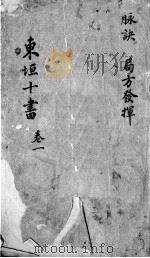 脉訣 局方發揮
東垣十書 卷一
mtoou.info